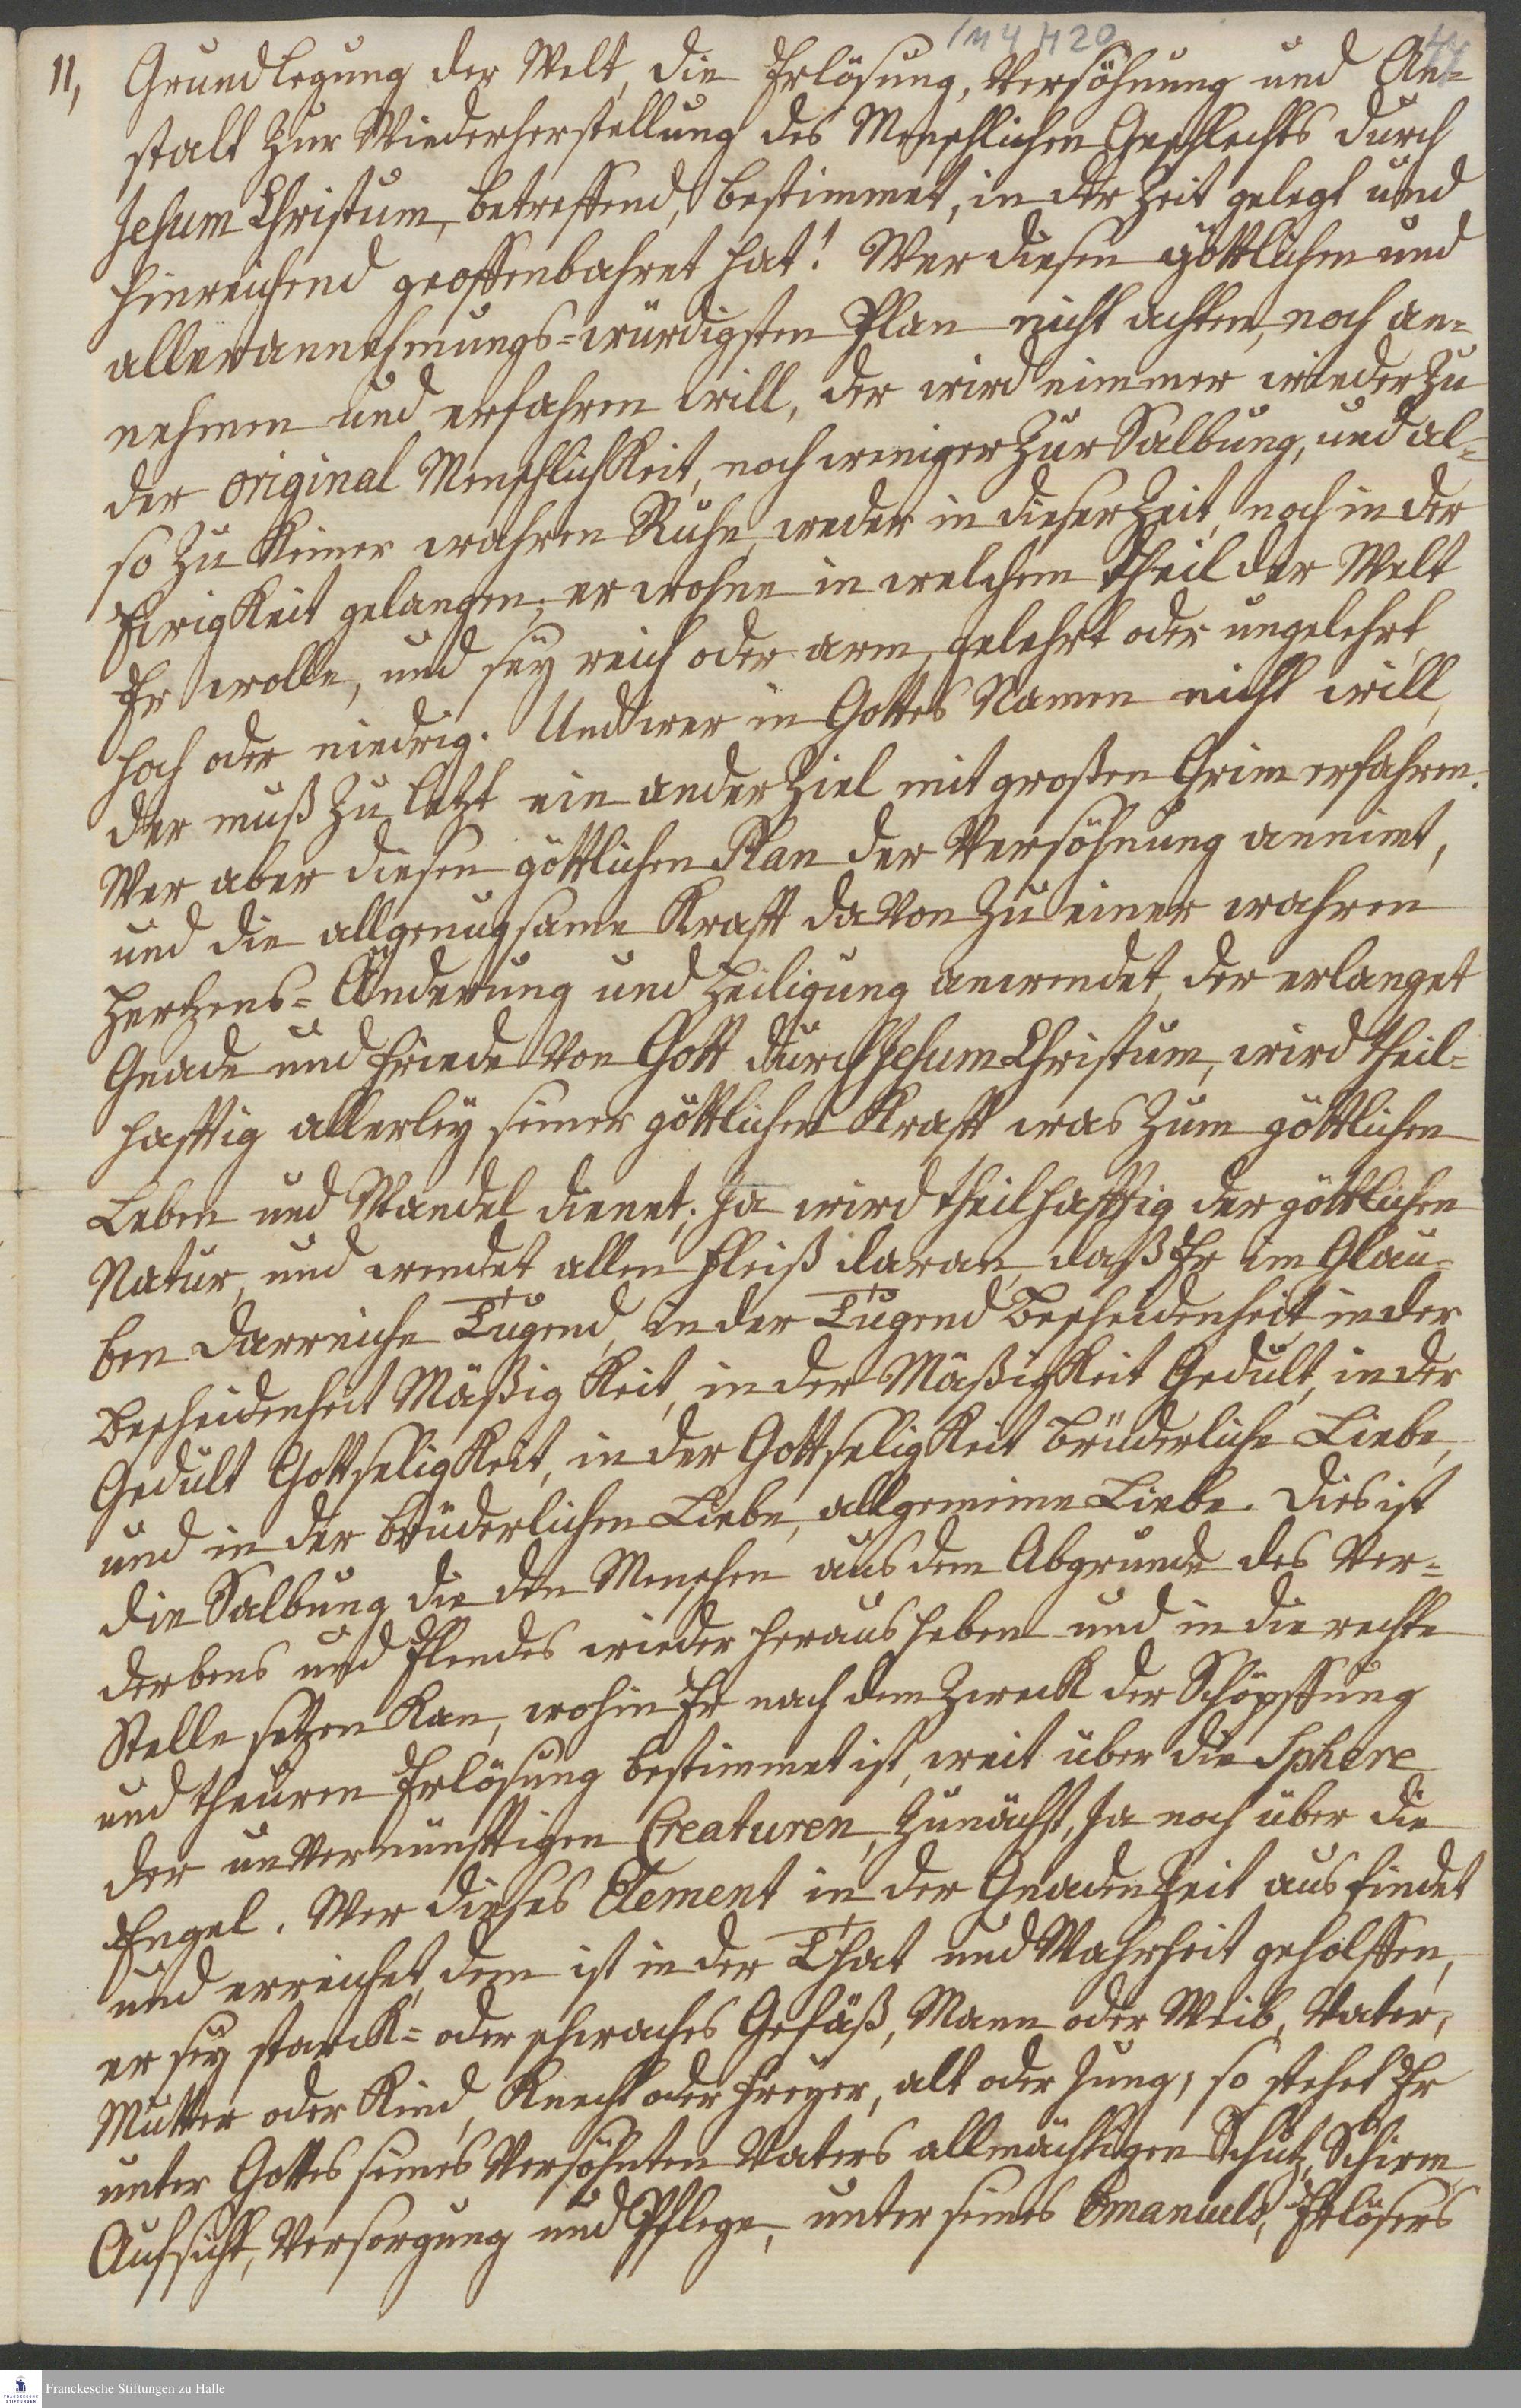 1M4 H20
44
11, Grundlegung der Welt, die Erlösung, Versöhnung und An-
stalt zur Wiederherstellung des Menschlichen Geschlechts durch
Jesum Christum, betreffend, bestimmet, in der Zeit gelegt und
hinreichend geoffenbahret hat! Wer diesen göttlichen und
allerannehmungs-würdigsten Plan nicht achten, noch an-
nehmen und erfahren will, der wird nimmer wieder zu
der original Menschlichkeit, noch weniger zur Salbung, und al-
so zu keiner wahren Ruhe, weder in dieser Zeit, noch in der
Ewigkeit gelangen; er wohne in welchem Theil der Welt
Er wolle, und sey reich oder arm, gelehrt oder ungelehrt,
hoch oder niedrig. Und wer in Gottes Namen nicht will,
der muß zu letzt ein ander Ziel mit großen Grim erfahren.
Wer aber diesen göttlichen Plan der Versöhnung annimt,
und die allgenugsame Krafft davon zu einer wahren
Hertzens-Änderung und Heiligung anwendet, der erlanget
Gnade und Friede von Gott durch Jesum Christum, wird theil-
hafftig allerley seiner göttlichen Krafft was zum göttlichen
Leben und Wandel dienet; Ja wird theilhafftig der göttlichen
Natur, und wendet allen Fleiß daran, daß Er im Glau-
ben darreiche Tugend, in der Tugend Bescheidenheit, in der
Bescheidenheit Mäßigkeit, in der Mäßigkeit Gedult, in der
Gedult Gottseligkeit, in der Gottseligkeit brüderliche Liebe,
und in der brüderlichen Liebe, allgemeine Liebe. Dies ist
die Salbung die den Menschen aus dem Abgrunde des Ver-
derbens und Elendes wieder heraus heben und in die rechte
Stelle setzen kan, wohin Er nach dem Zweck der Schöpffung
und theuren Erlösung bestimmet ist, weit über die Sphere
der unvernünfftigen Creaturen, zunächst, Ja noch über die
Engel. Wer dieses Element in der Gnadenzeit ausfindet
und erreichet, dem ist in der That und Wahrheit geholffen,
er sey starck- oder schwaches Gefäß, Mann oder Weib, Vater,
Mutter oder Kind, Knecht oder Freyer, alt oder Jung; so stehet Er
unter Gottes seines Versöhnten Vaters allmächtigen Schutz, Schirm,
Aufsicht, Versorgung und Pflege, unter seines Emanuels, Erlösers
Franckesche Stiftungen zu Halle